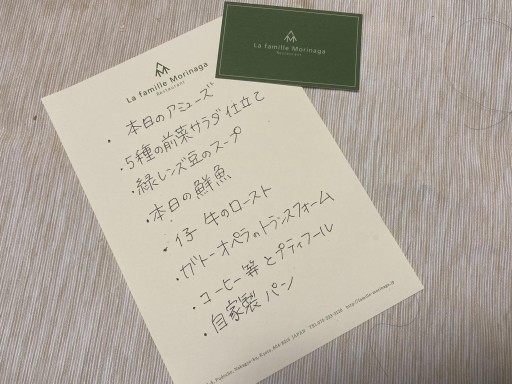 La famille Morinaga
Restaurant
La famille Morinaga
Restaurant
・本日のアミューズ
・5種の前菜サラダ仕立て
・緑レンズ豆のスープ
・本日の鮮魚
・仔牛のロースト
・ガトーオペラのトランスフォーム
・コーヒー等とプティフール
・自家製パン
Nakagyo-ku, Kyoto, JAPAN